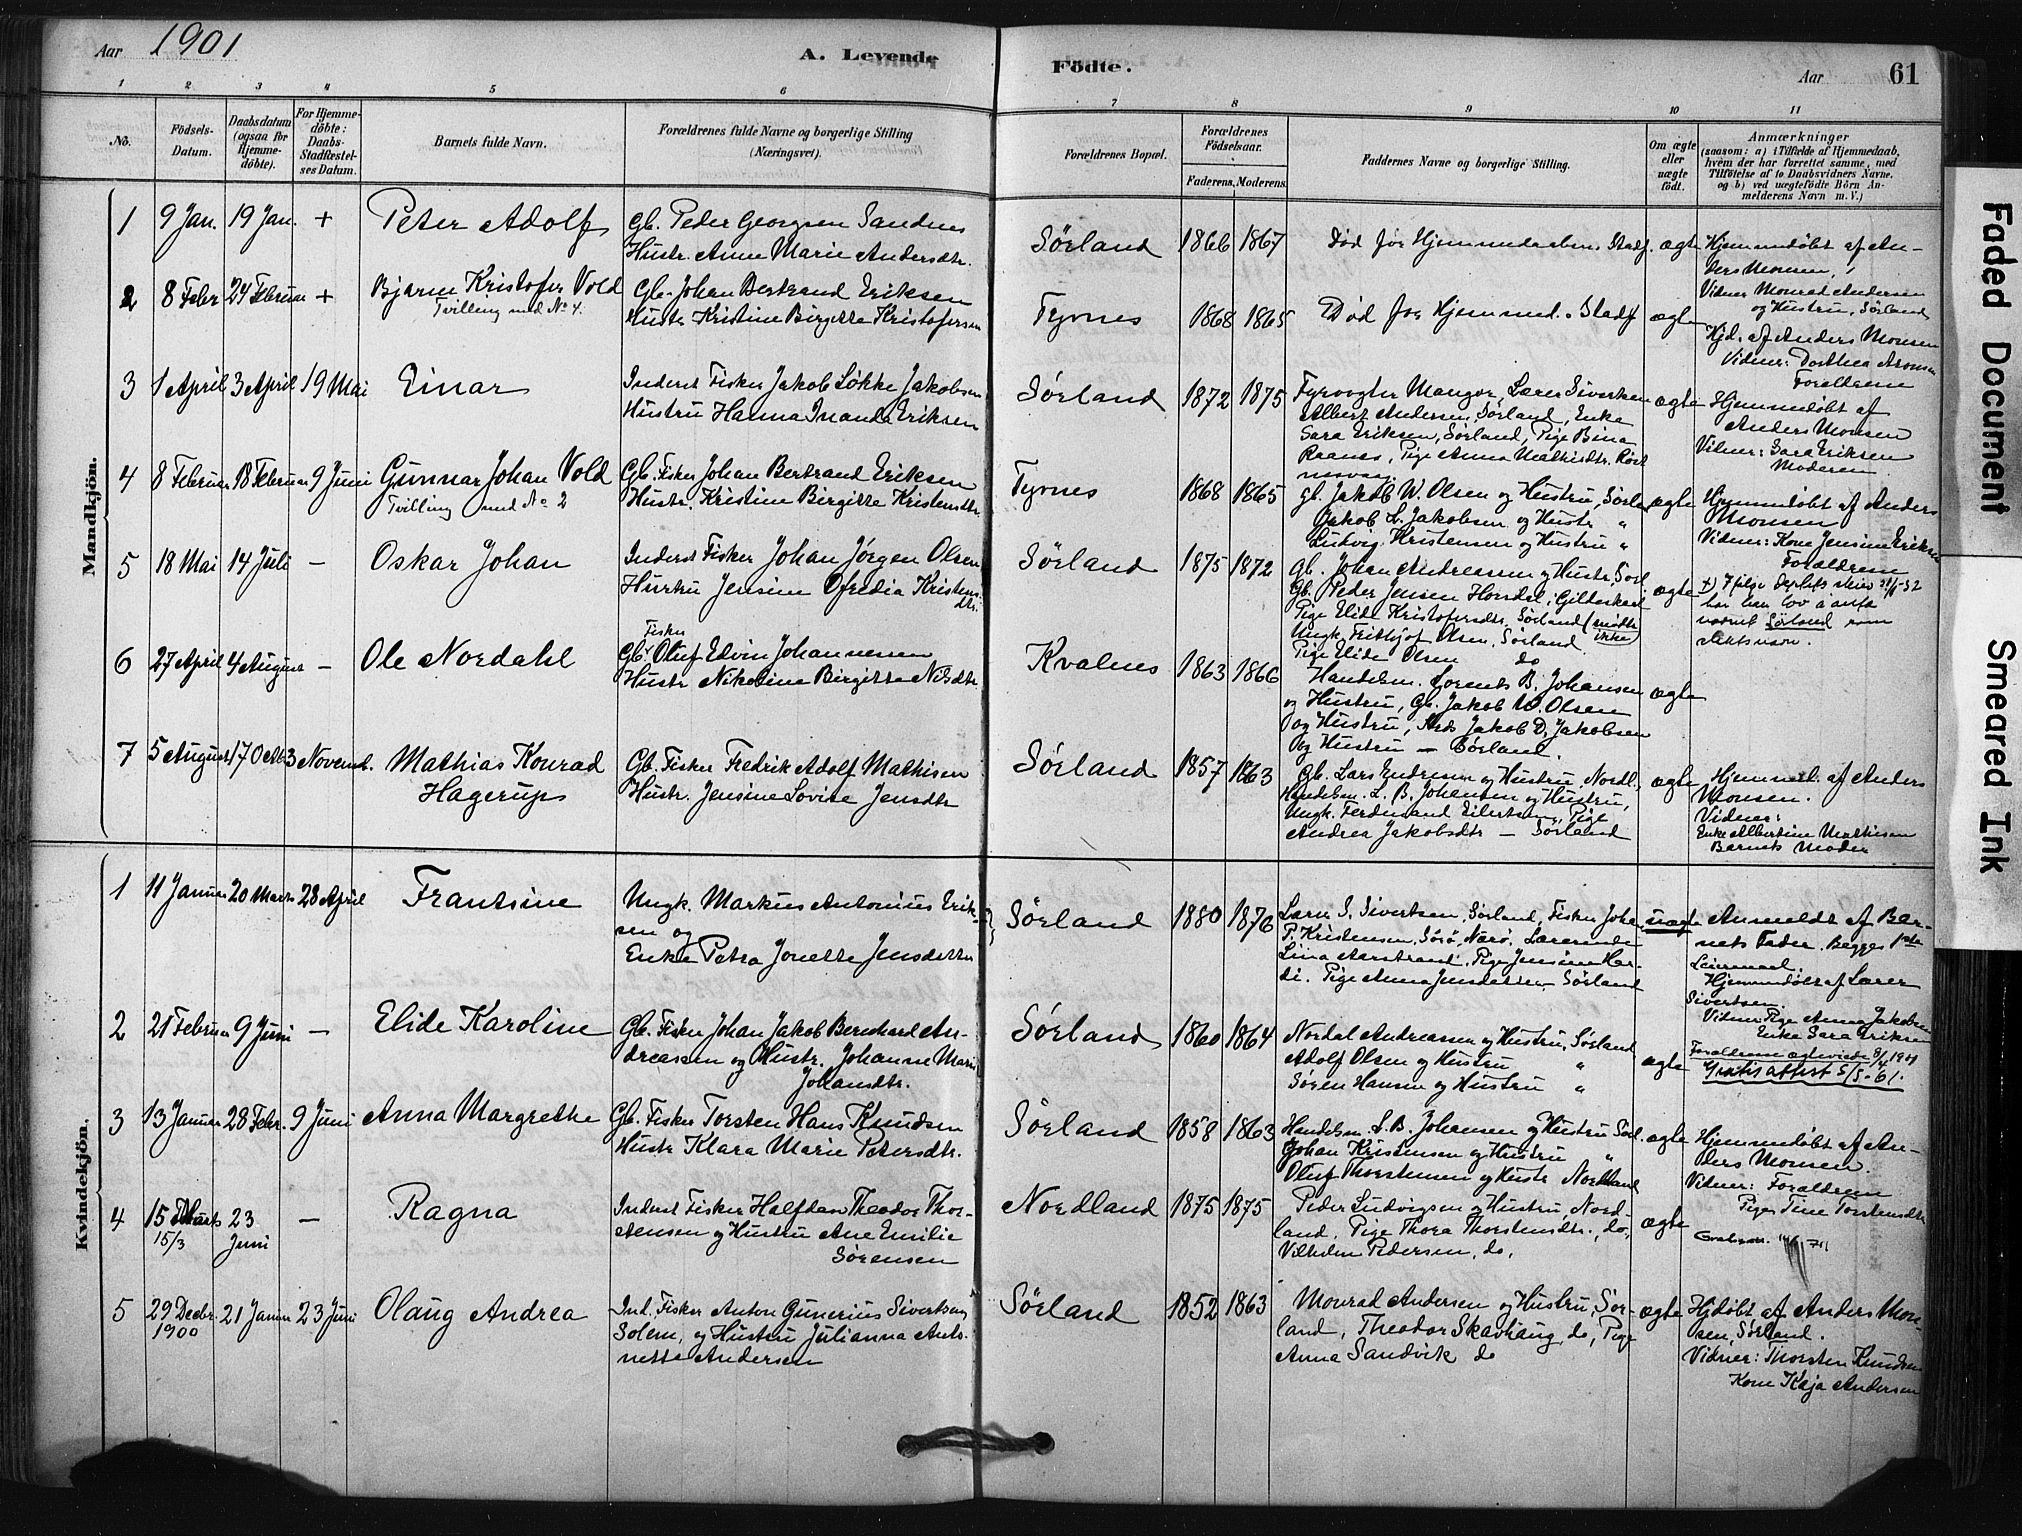 Aar 1901
A. Levende
Födte.
Aar 61
1 2 3 4 5 6 7 8 9 10 11
No.
Födsels-
Datum.
Daabsdatum
(ogsaa for
Hjemme-
döbte).
For Hjemme-
döbte:
Daabs-
Stadfæstel-
ses Datum.
Barnets fulde Navn.
Forældrenes fulde Navne og borgerlige Stilling
(Næringsvei).
Forældrenes Bopæl.
Forældrenes
Födselsaar.
Faderens. Moderens.
Faddernes Navne og borgerlige Stilling.
Om ægte
eller
uægte
födt.
Anmærkninger
(saasom: a) i Tilfælde af Hjemmedaab,
hvem der har forrettet samme, med
Tilföielse af to Daabsvidners Navne,
og b) ved uægtefödte Börn An-
melderens Navn m. V.)
Mandkjön.
1 9 Jan. 19 Jan. + Peter Adolf
Gb. Peder Georgsen Sandnes
Hustr. Anne Marie Andersdtr.
Sørland 1866 1867
Død før Hjemmedaabens Stadf. ægte
Hjemmedøbt af An-
ders Monsen,
Vidner Monrad Andersen
og Hustru, Sørland
2 8 Febr 24 Februar + Bjarne Kristofer Vold
Tvilling med No 4.
Gb. Johan Bertrand Eriksen
Hustr Kristine Birgitte Kristofersen
Tyvnes 1868 1865
Død før Hjemmed. Stadf ægte
Hjd. af Anders Monsen
Vidner: Dorthea Aronsen
Forældrene
3 1 April 3 April 19 Mai Einar
Inderst Fisker Jakob Løkke Jakobsen
Hustru Hanna Inanda Eriksen
Sørland 1872 1875
Fyrvogter Mangor, Lærer Sivertsen
Albert Andersen, Sørland, Enke
Sara Eriksen, Sørland, Pige Bina
Raanes, Pige Anna Mathisdtr. Røst
ægte
Hjemmedøbt af
Anders Monsen
Vidner: Sara Eriksen
Moderen
4 8 Februar 18 Februar 9 Juni Gunnar Johan Vold
Tvilling med No 2
Gb. Fisker Johan Bertrand Eriksen
Hustr. Kristine Birgitte Kristensdtr.
Tyvnes 1868 1865
Gb. Jakob W. Olsen og Hustru, Sørland
Jakob L. Jakobsen og Hustr "
Ludvig Kristensen og Hustru "
ægte
Hjemmedøbt af Anders
Monsen
Vidner: Kone Jensine Eriksen
Forældrene
5 18 Mai 14 Juli – Oskar Johan
Inderst Fisker Johan Jørgen Olsen
Hustru Jensine Ofredia Kristens-
dtr.
Sørland 1875 1872
Gb. Johan Andreassen og Hustr, Sørl
Gb. Peder Jensen Horsdal, Gildeskaal
Pige Elide Kristofersdtr, Sørland (mødte
Ungk. Frithjof Olsen, Sørland. ikke)
Pige Elide Olsen do
ægte
har han lov å anta
navnet Sørland som
slektsnavn.
6 27 April 4 August – Ole Nordahl
Fisker
Gb. Oluf Edvin Johannesen
Hustr Nikoline Birgitte Nilsdtr.
Kvalnes 1863 1866
Handelsm. Lorents B. Johansen
og Hustru, Gb. Jakob W. Olsen
og Hustru, Jakob D. Jakobsen
og Hustru – Sørland.
ægte
7 5 August 17 Octb 3 Novemb. Mathias Konrad
Hagerups
Gb. Fisker Fredrik Adolf Mathisen
Hustr. Jensine Lovise Jensdtr
Sørland 1857 1863
Gb. Lars Endresen og Hustru, Nordl.
Handelsm. L. B. Johansen og Hustru,
Ungk. Ferdinand Eilertsen, Pige
Andrea Jakobsdtr – Sørland
ægte
Hjemmed. af Anders
Monsen.
Vidner:
Enke Albertine Mathisen
Barnets Moder
Kvindekjön.
1 11 Januar 20 Marts 28 April Frantsine
Ungk. Markus Antonius Erik-
sen og
Enke Petra Jonette Jensdatter
Sørland 1880 1876
Lærer S. Sivertsen, Sørland, Fisker Johan
P. Kristensen, Sørø, Nærø, Lærerinde
Lina Aarstrand, Pige Jensine Har-
di. Pige Anna Jensdatter, Sørland
uægte
Anmeldt af Bar-
nets Fader. Begges 1ste
Leiermaal.
Hjemmedøbt af Lærer
Sivertsen.
Vidner: Pige Anna Jakobsen
Enke Sara Eriksen
Forældrene ægteviede 8/4 1901
Gratis attest 5/5-61.
2 21 Februar 9 Juni – Elide Karoline
Gb. Fisker Johan Jakob Bernhard An-
dreassen og Hustr. Johanne Marie
Johansdtr.
Sørland 1860 1864
Nordal Andreassen og Hustru, Sørland
Adolf Olsen og Hustru "
Søren Hansen og Hustru "
ægte
3 13 Januar 28 Febr. 9 Juni Anna Margrethe
Gb. Fisker Torsten Hans Knudsen
Hustr Klara Marie Petersdtr.
Sørland 1858 1863
Handelsm. L. B. Johansen og Hustru Sørl.
Johan Kristensen og Hustru "
Oluf Thorstensen og Hustr Nordland
ægte
Hjemmedøbt af An-
ders Monsen.
Vidner: Forældrene
Pige Tine Torstensdtr
4 15 Marts 23
15/3 Juni
– Ragna
Inderst Fisker Halfdan Theodor Thor-
stensen og Hustru Ane Emilie
Sørensen
Nordland 1875 1875
Peder Ludvigsen og Hustru, Nord-
land, Pige Thora Thorstensdtr., do,
Vilhelm Pedersen, do,
ægte
5 29 Decbr. 21 Januar 23 Juni Olaug Andrea
1900
Ind. Fisker Anton Gunerius Sivertsen
Solem, og Hustru Julianna Anto-
nette Andersen
Sørland 1852 1863
Monrad Andersen og Hustru, Sør-
land, Theodor Skavhaug do, Pige
Anna Sandvik do
ægte
Hjdøbt af Anders Mon-
sen, Sørland.
Vidner: Thorsten Knudsen
Kone Kaja Andersen
Faded Document
Smeared Ink